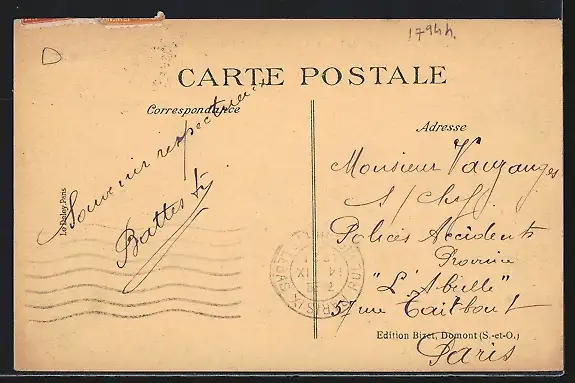 1794h.
CARTE POSTALE
Correspondance
Adresse
Souvenir respectueux
Le Deley, Paris
Monsieur Vauzanges
s/chef
Polices Accidents
Province
"L'Abeille"
57 rue Taitbout
Paris
Edition Bizet, Domont (S.-et-O.)